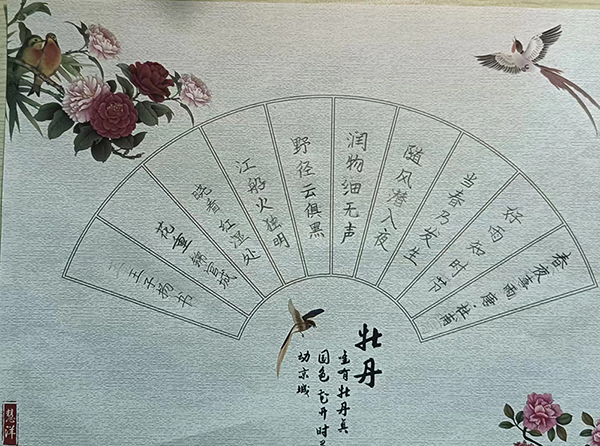 春夜喜雨 唐·杜甫
好雨知时节
当春乃发生
随风潜入夜
润物细无声
野径云俱黑
江船火独明
晓看红湿处
花重锦官城
王子扬书
牡丹
唯有牡丹真
国色花开时
动京城
慧洋